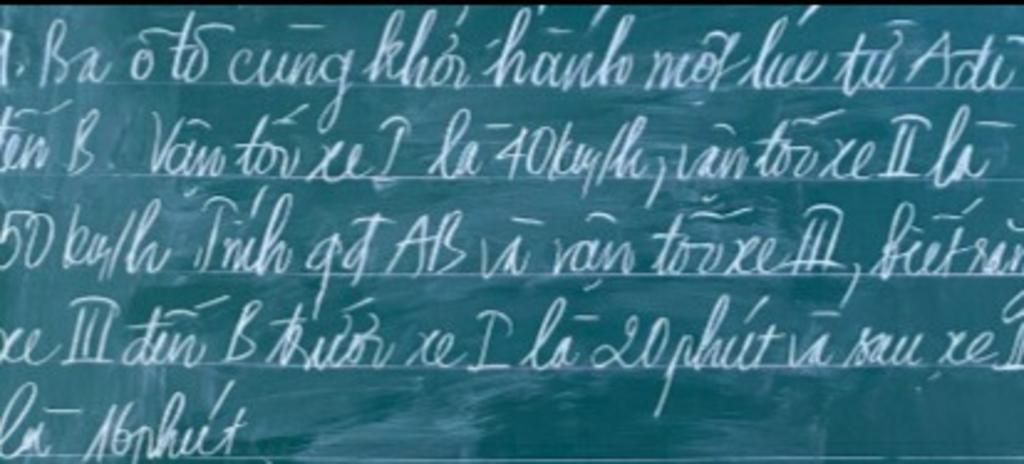 1. Ba ô tô cùng khởi hành một lúc từ A đi
đến B. Vận tốc xe I là 40km/h, vận tốc xe II là
50km/h Tính qđ AB và vận tốc xe III, biết rằng
xe III đến B trước xe I là 20phút và sau xe II
là 16phút